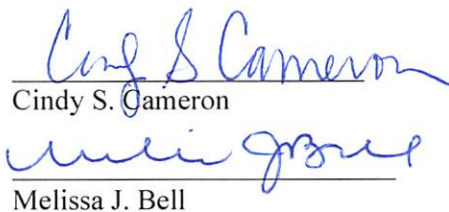 Cindy S Cameron
Cindy S. Cameron
Melissa J Bell
Melissa J. Bell